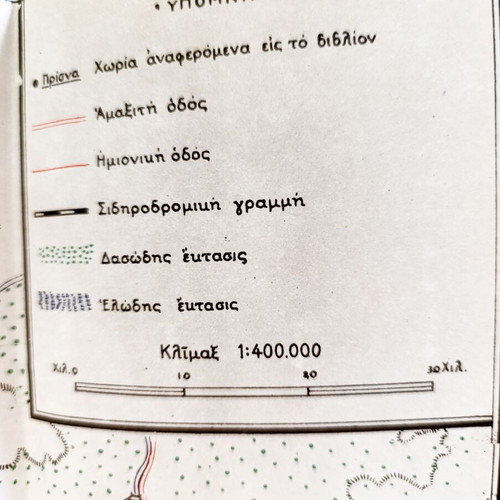 Πρίσνα Χωρία ἀναφερόμενα εἰς τὸ βιβλίον
Ἁμαξιτὴ ὁδός
Ἡμιονικὴ ὁδός
Σιδηροδρομικὴ γραμμή
Δασώδης ἔκτασις
Ἑλώδης ἔκτασις
Κλῖμαξ 1:400.000
Χιλ. 0 10 20 30 Χιλ.